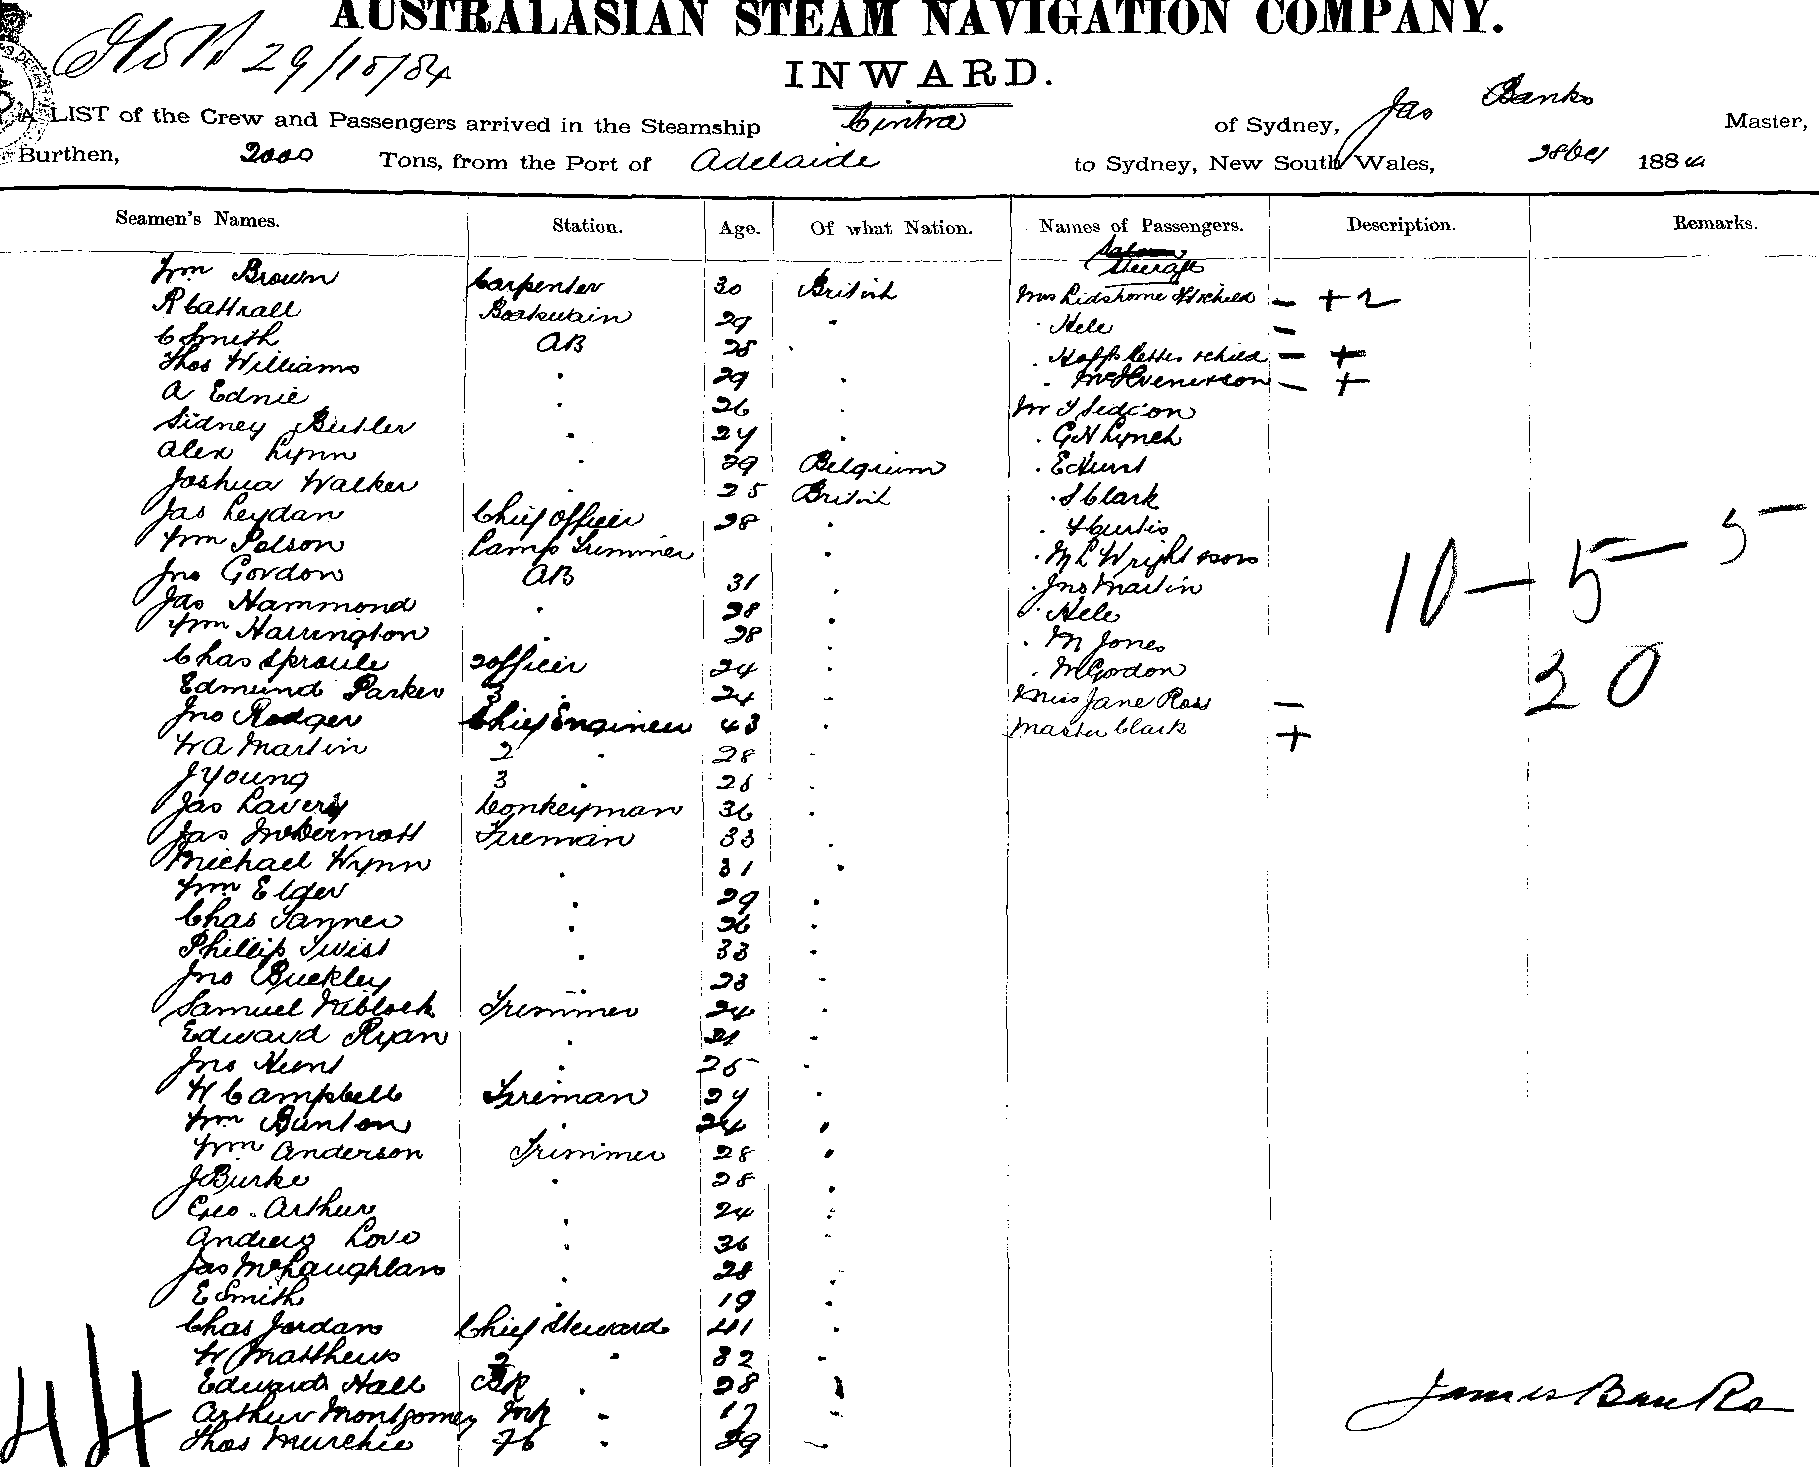 AUSTRALASIAN STEAM NAVIGATION COMPANY.
29/10/84
INWARD.
A LIST of the Crew and Passengers arrived in the Steamship Cintra of Sydney, Jas Banks Master,
Burthen, 2000 Tons, from the Port of Adelaide to Sydney, New South Wales, 28 Oct 1884
Seamen's Names. Station. Age. Of what Nation. Names of Passengers. Description. Remarks.
Steerage
Wm Brown Carpenter 30 British Mrs Lidstrome & child - + 2
R Cattrall Boatswain 29 " " Hele -
C Smith AB 25 " " child - +
Thos Williams " 29 " " - +
A Ednie " 26 " Mr
Sidney Butler " 24 " " G H Lynch
Alex Lynn " 29 Belgium " E Hurst
Joshua Walker " 25 British " S Clark
Jas Leydan Chief Officer 28 " " Curtis
Wm Polson Lamp Trimmer " " M L Wright
Jno Gordon AB 31 " " Jno Martin
Jas Hammond " 28 " " Hele
Wm Harrington " 28 " " M Jones
Chas Sproule 2 officer 24 " " M Gordon
Edmund Parker 3 " 24 " Miss Jane Ross -
Jno Rodger Chief Engineer 43 " Master Clark +
W A Martin 2 " 28 "
J Young 3 " 25 "
Jas Lavery Donkeyman 36 "
Jas McDermott Fireman 33 "
Michael Wynn " 31 "
Wm Elger " 29 "
Chas Tanner " 26 "
Phillip Twist " 33 "
Jno Buckley " 23 "
Samuel Niblock Trimmer 24 "
Edward Ryan " 21 "
Jno Hunt " 25 "
W Campbell Fireman 24 "
Wm Bunton " 24 "
Wm Anderson Trimmer 28 "
J Burke " 28 "
Geo. Arthur " 24 "
Andrew Love " 36 "
Jas McLaughlan " 28 "
E Smith " 19 "
Chas Jordan Chief Steward 41 "
W Matthews 2 " 32 "
Edward Hall " 28 "
Arthur Montgomery " 17 "
Thos Murchie " 39 "
10 - 5 - 5
20
44
James Banks